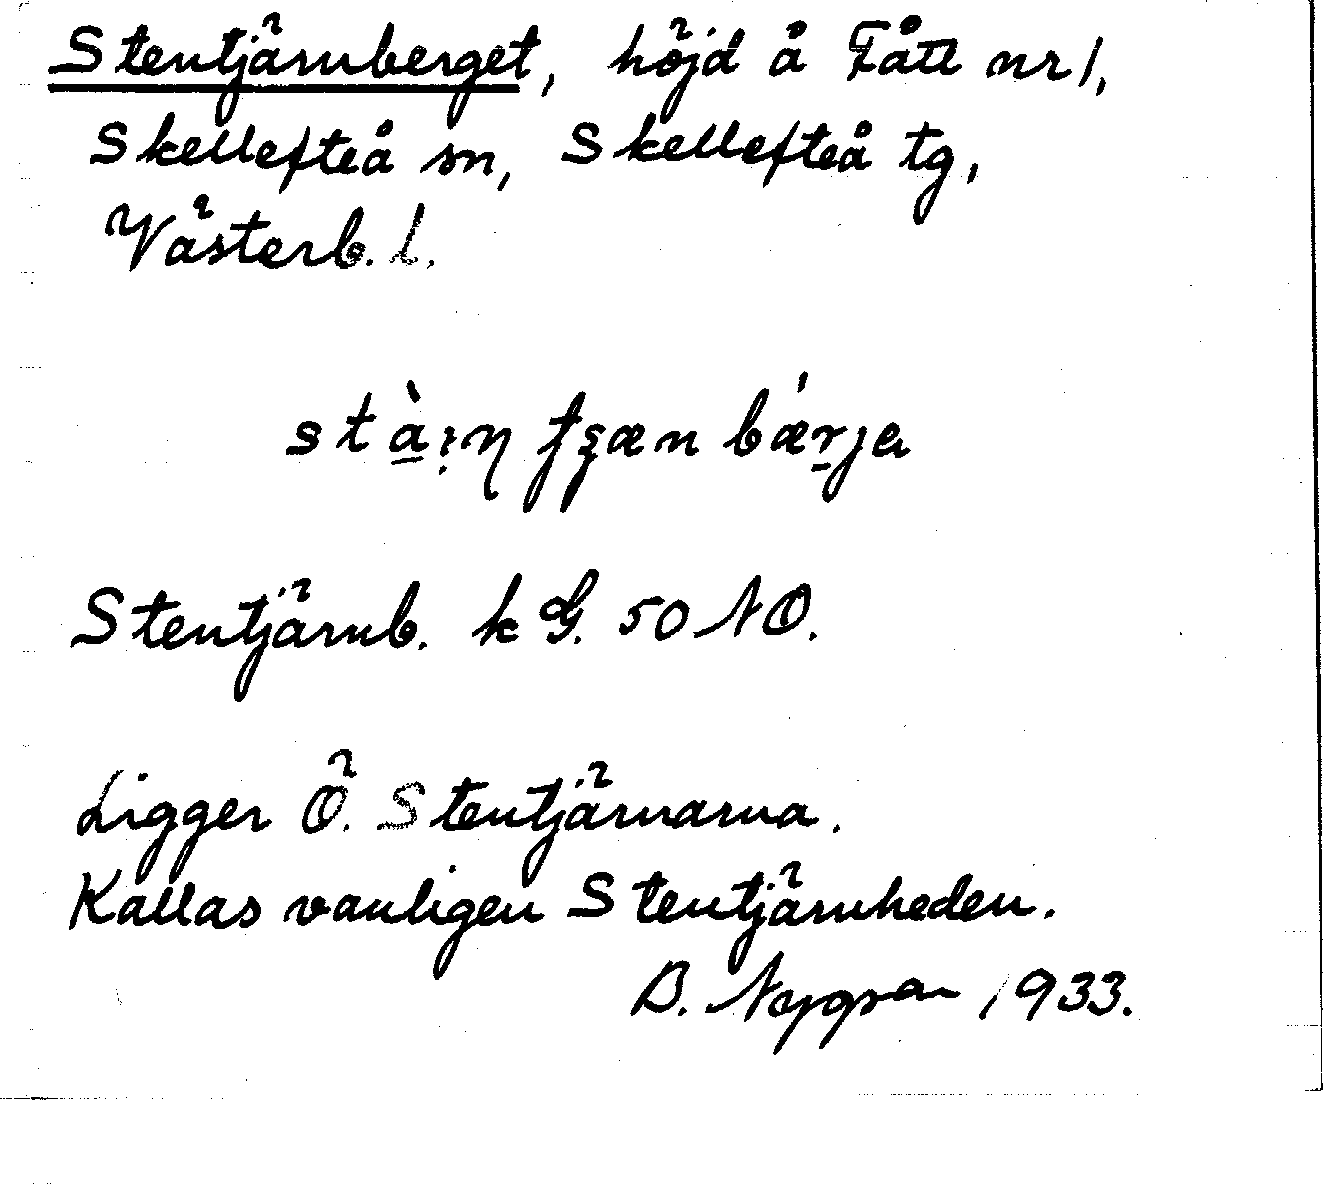 Stentjärnberget, höjd å Fåtl nr 1,
Skellefteå sn, Skellefteå tg,
Västerb. l.
Stentjärnb. k G. 50 NO.
Ligger Ö. Stentjärnarna.
Kallas vanligen Stentjärnheden.
B. Nygren 1933.